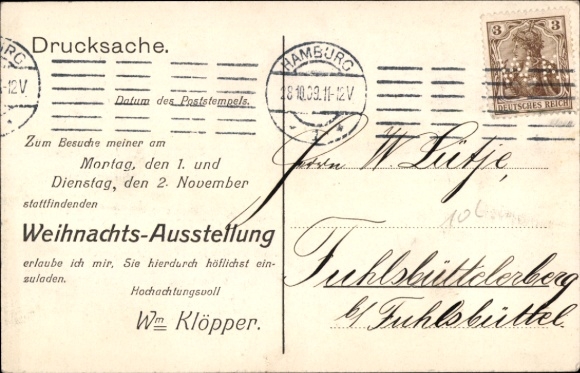 Drucksache.
HAMBURG
28.10.09.11-12V
1
3
DEUTSCHES REICH
Datum des Poststempels.
Zum Besuche meiner am
Montag, den 1. und
Dienstag, den 2. November
stattfindenden
Weihnachts-Ausstellung
erlaube ich mir, Sie hierdurch höflichst ein-
zuladen.
Hochachtungsvoll
Wm Klöpper.
Herrn W. Lütje,
Fuhlsbüttelerberg
b/ Fuhlsbüttel.